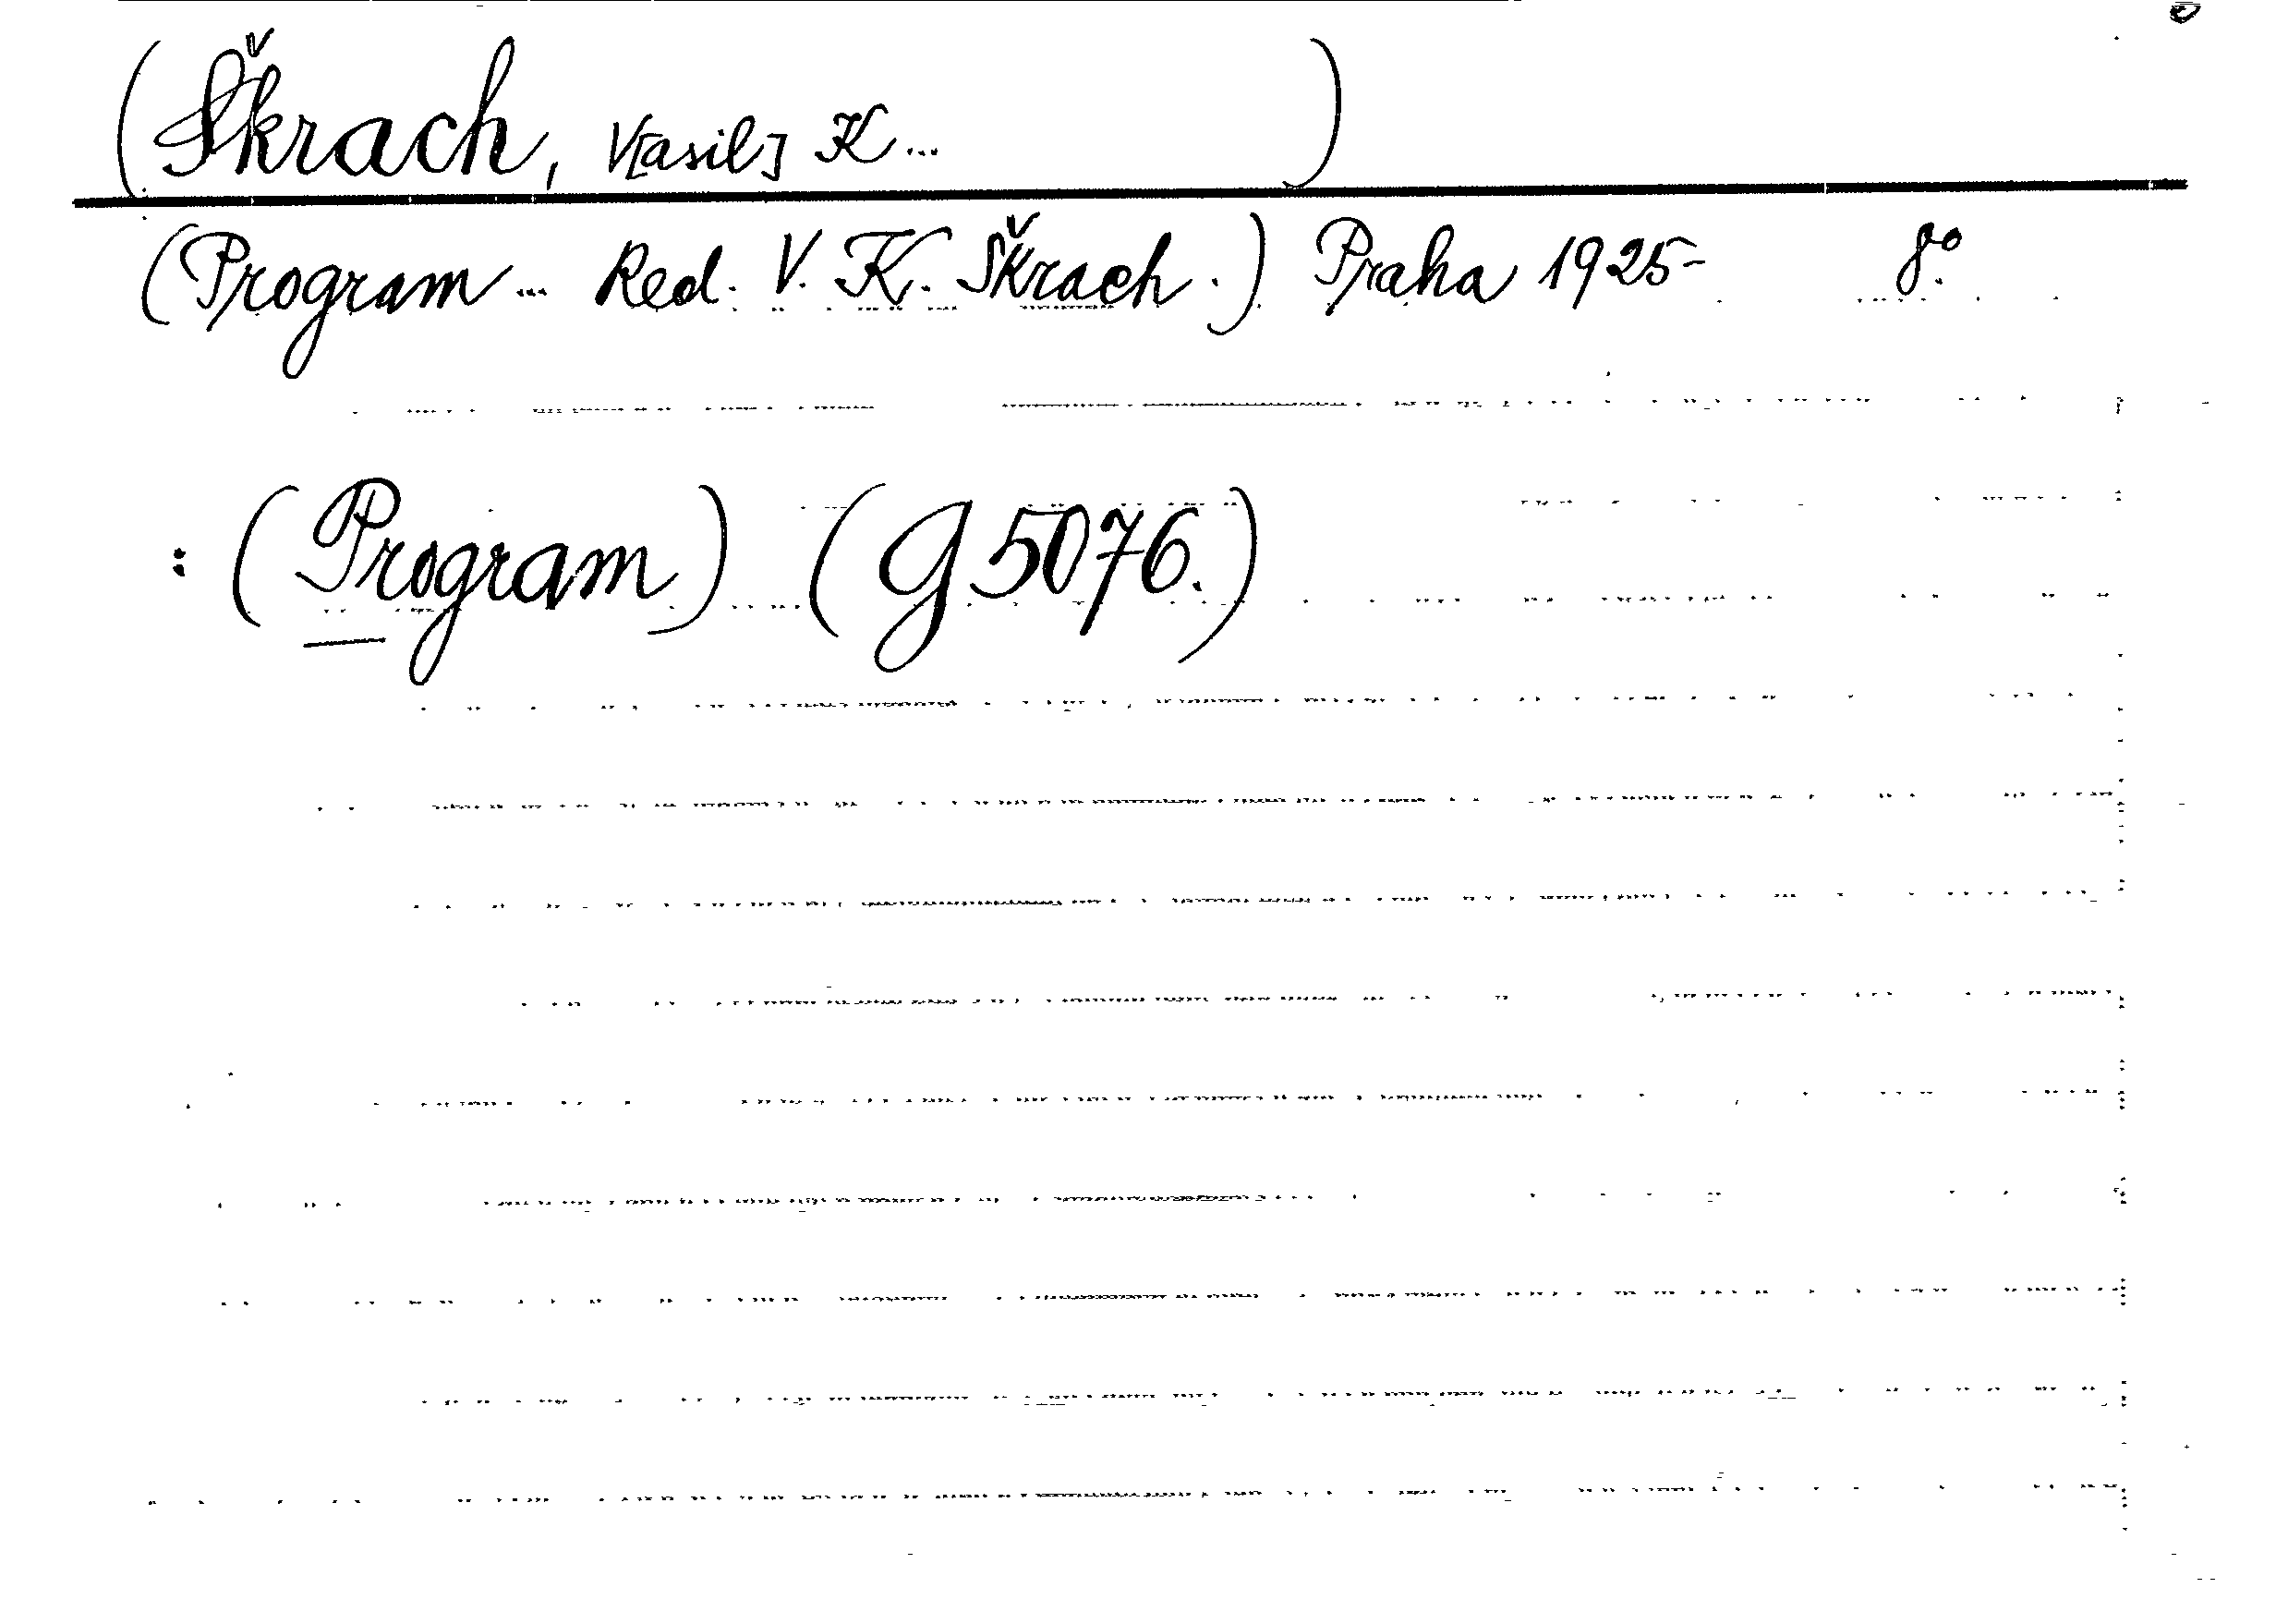 (Škrach, V[asil] K... )
(Program... Red. V. K. Škrach.) Praha 1925- 8º.
: (Program) (G 5076.)